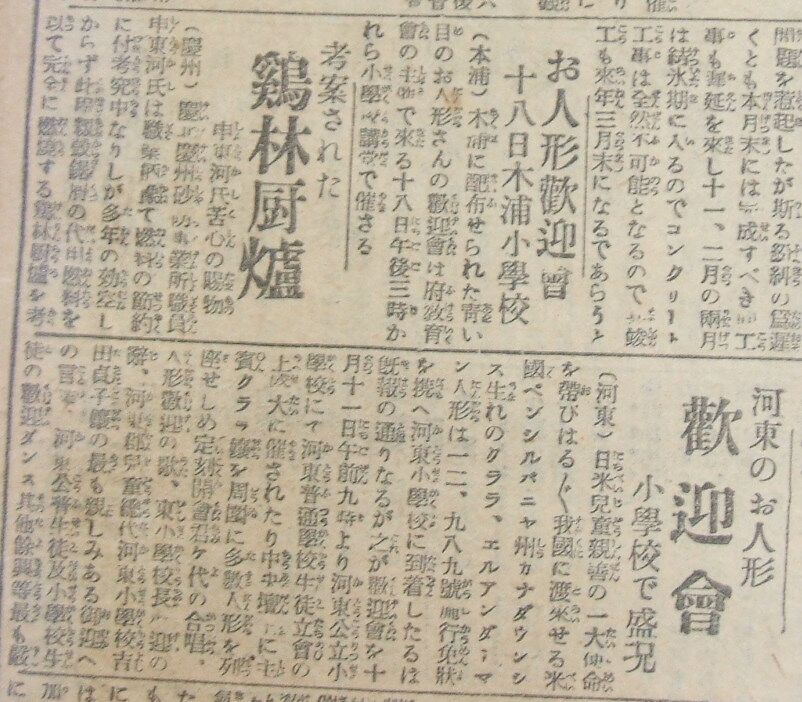 問題を惹起したが斯る紛糾の爲遲
くとも本月末には成すべき工
事も遲延を來し十一、二月の兩月
は結氷期に入るのでコンクリート
工事は全然不可能となるので竣
工も來年三月末になるであらう
お人形歡迎會
十八日木浦小學校
(木浦)木浦に配布せられた靑い
目のお人形さんの歡迎會は府敎育
會の主で來る十八日午後三時か
れら小學校講堂で催さる
考案された
鷄林厨爐
申東河氏苦心の賜物
(慶州)慶州砂防事業所職員
申東河氏は職業柄燃料の節約
に付考究中なりしが多年の効空し
からず此層の代用燃料を
以て完全に燃燒する鷄林厨爐を考
河東のお人形
歡迎會
小學校で盛況
(河東)日米兒童親善の一大使命
を帶びはる〲我國に渡來せる米
國ペンシルバニヤ州カナダウンシ
ス生れのクララ、エルアンダーマ
ン人形は一二、九八九號旅行免狀
を携へ河東小學校に到着したるは
旣報の通りなるが之が歡迎會を十
月十一日午前九時より河東公立小
學校にて河東普通學校生徒立會の
上盛大に催されたり中央壇に主
賓クララ孃を周圍に多數人形を列
座せしめ定刻開會君ケ代の合唱、
人形歡迎の歌、東小學校長迎の
辭、河兒童總代河東小學校吉
田貞子孃の最も親しみある御迎へ
の言、河東公普生徒及小學校生
徒の歡迎ダンス其他餘興等最も